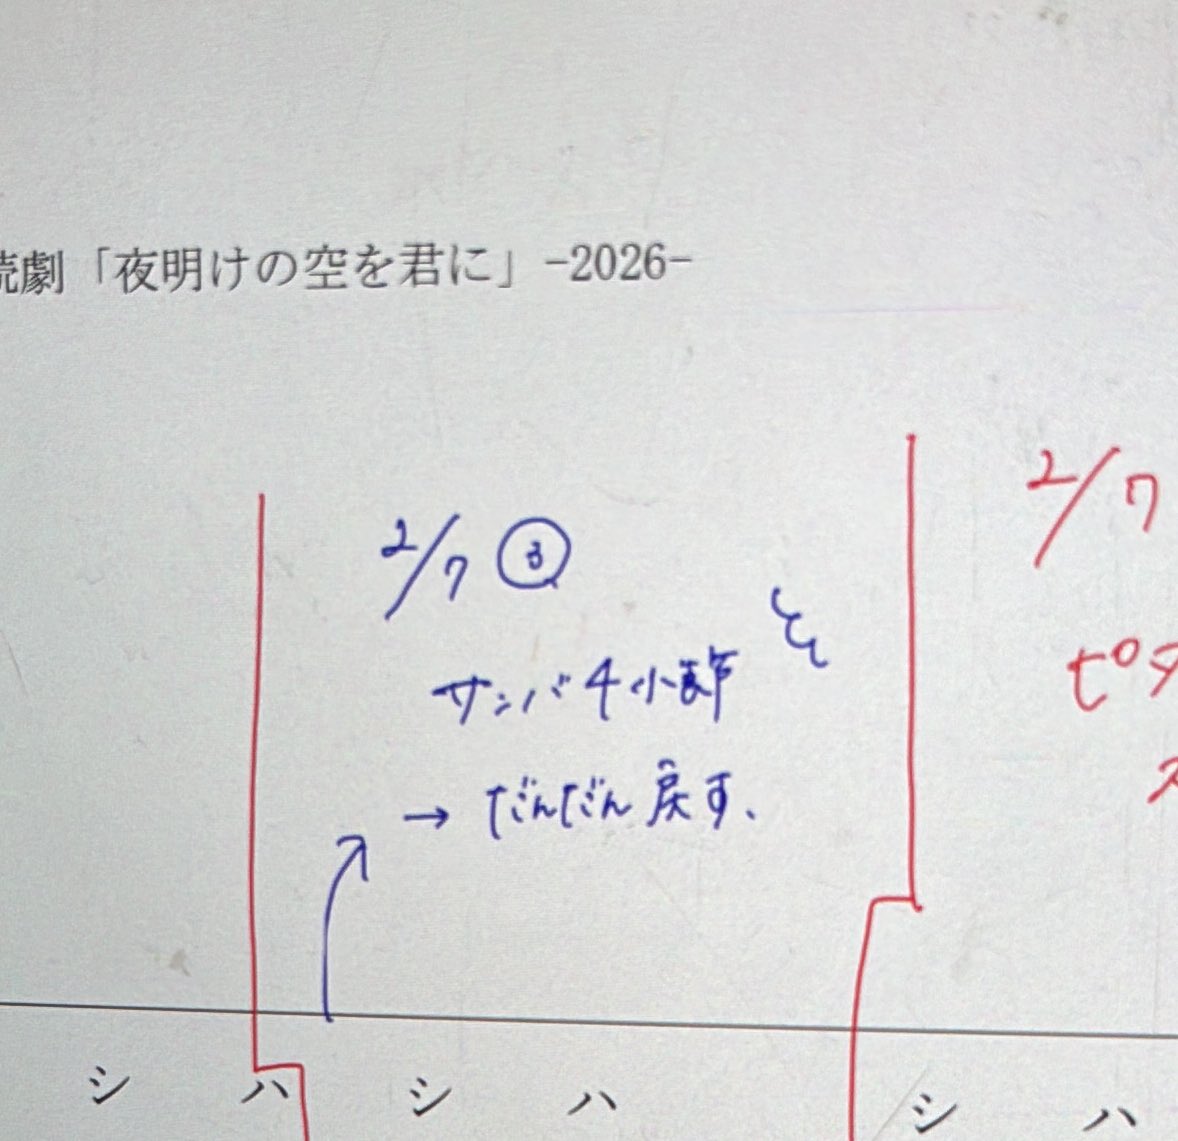 読劇「夜明けの空を君に」-2026-
2/7 ③
サンバ4小節
→ だんだん戻す、
2/7
ピタ
シ ハ シ ハ シ ハ